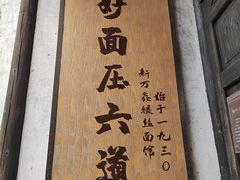 好面压六道
始于一九三〇
新万鑫银丝面馆